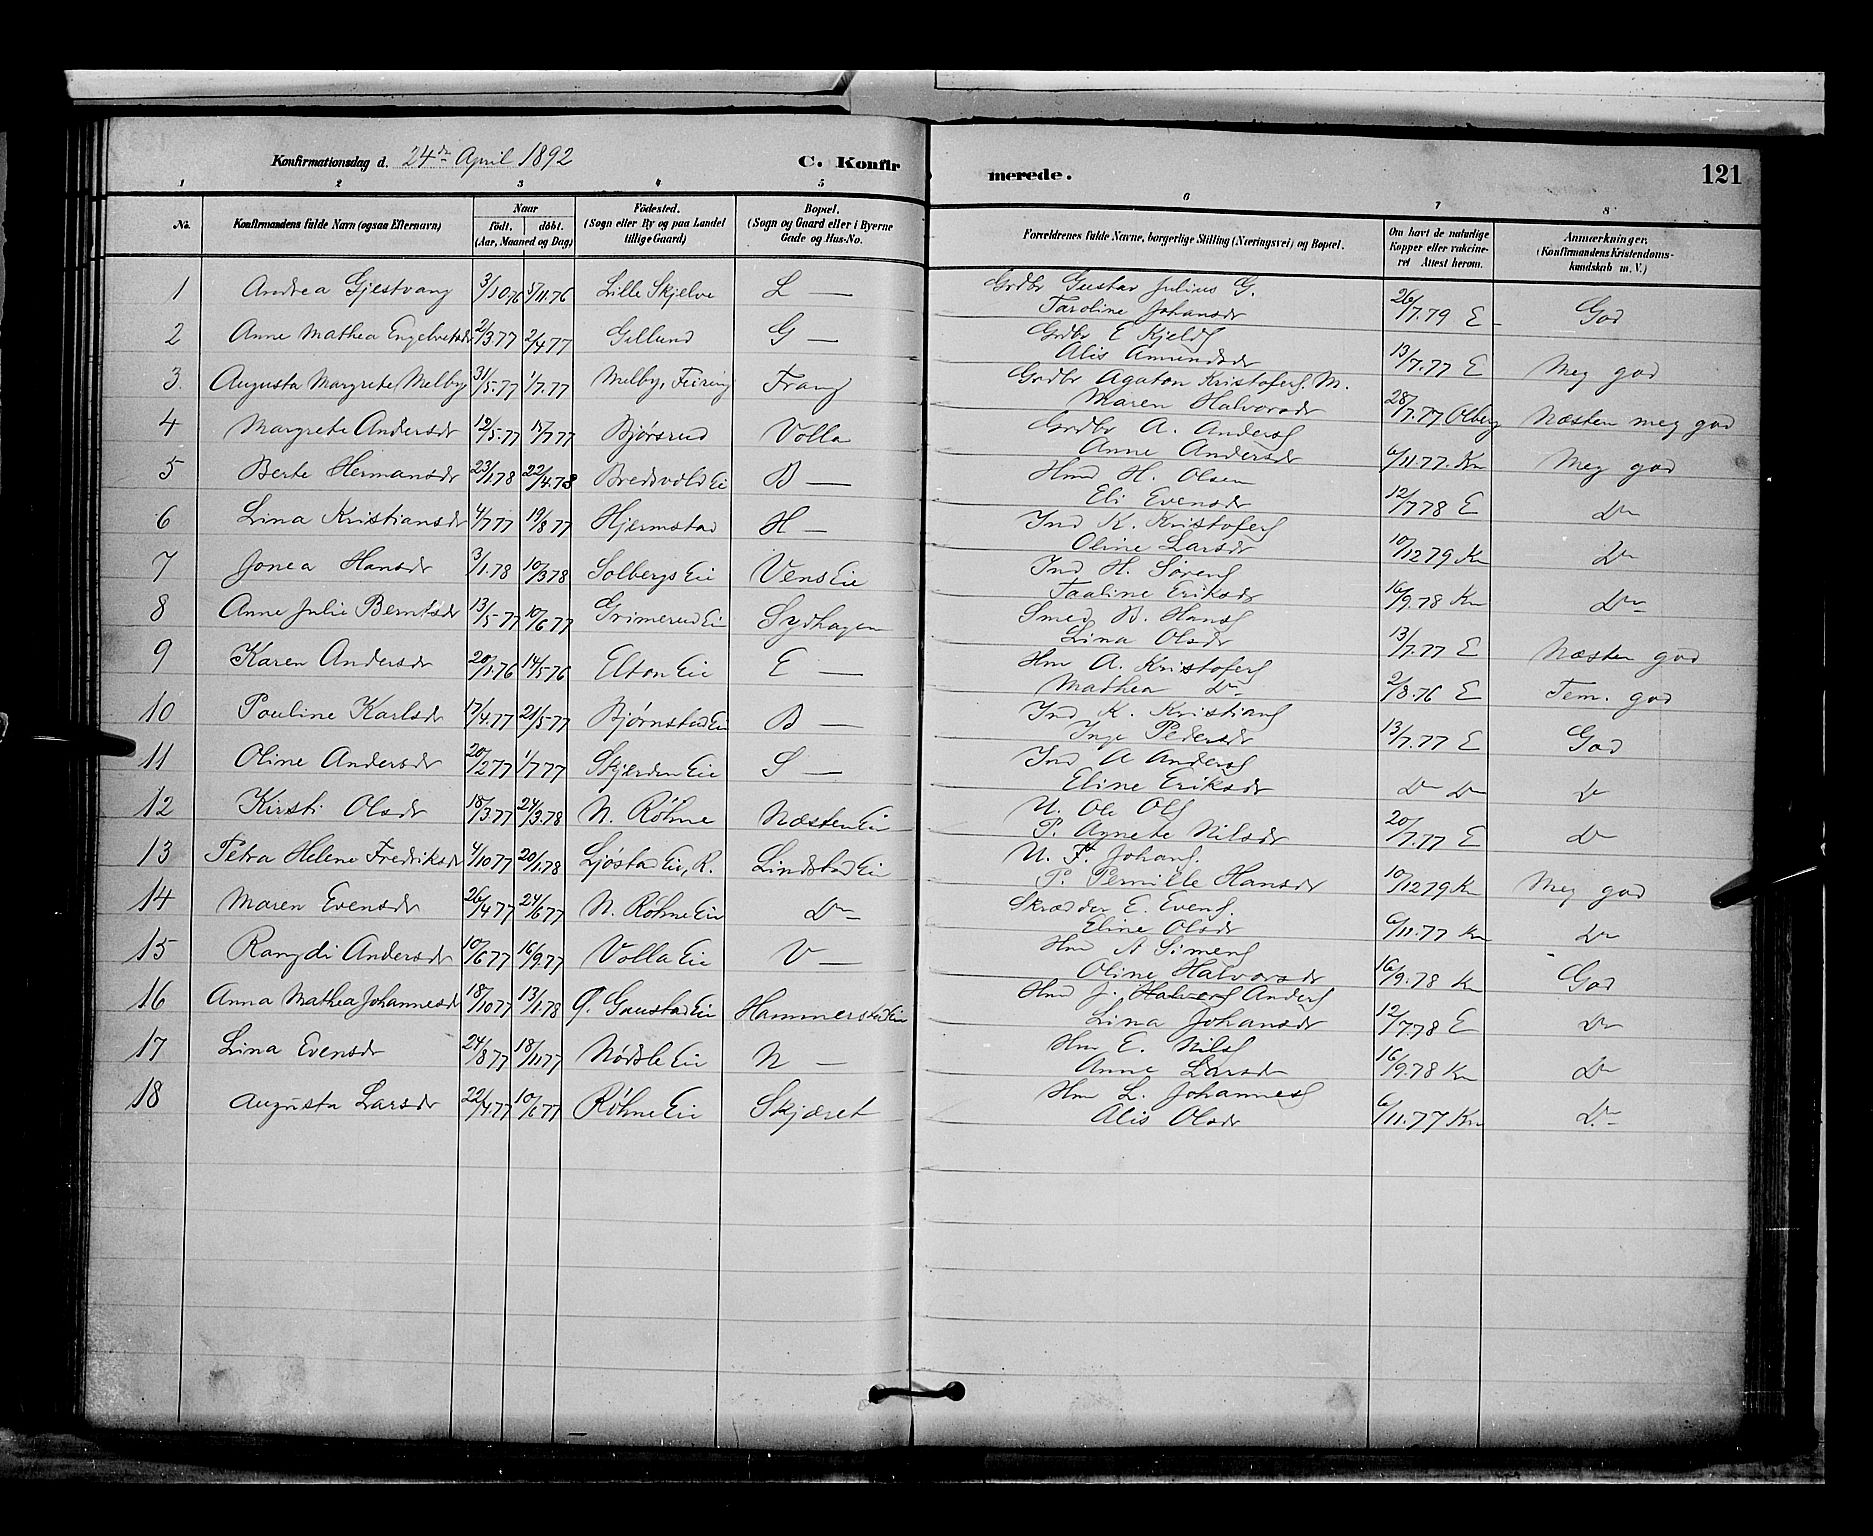 Konfirmationsdag d. 24de April 1892 C. Konfir merede. 121
1 2 3 4 5 6 7 8
No. Konfirmandens fulde Navn (ogsaa Efternavn) Naar födt. döbt. (Aar, Maaned og Dag) Födested. (Sogn eller By og paa Landet tillige Gaard) Bopæl. (Sogn og Gaard eller i Byerne Gade og Hus-No. Forældrenes fulde Navne, borgerlige Stilling (Næringsvei) og Bopæl. Om havt de naturlige Kopper eller vakcineret Attest herom. Anmærkninger. (Konfirmandens Kristendomskundskab m. V.)
1 Andrea Gjestvang 3/10 76 5/11.76 Lille Skjelve L — Grdbr Gustav Julius G.
Taroline Johansdr 26/7.79 E God
2 Anne Mathea Engelvetsdr 2/3.77 2/4.77 Gillund G — Grdbr E Kjelds
Alis Amundsdr 13/7.77 E Meg god
3. Augusta Margrete Melby 31/5.77 1/7.77 Melby, Feiring Frang Grdbr Agaton Kristofers. M.
Maren Halvorsdr 28/7.77 Olberg Næsten meg god
4 Margrete Andersdr 12/5.77 15/7.77 Bjørsrud Volla Grdbr A. Anders
Anne Andersdr 6/11.77. Kn Meg god
5 Berte Hermansdr 23/1.78 22/4.78 Bredvold Ei B — Hmd H. Olsen
Eli Evensdr 12/7.78 E Do
6 Lina Kristiansdr 4/7.77 19/8 77 Hjermstad H — Ind K. Kristofers
Oline Larsdr 10/12 79 Kn Do
7 Jonea Hansdr 3/1.78 10/3 78 Solbergs Eie Vens Eie Ind H. Sørens
Taaline Eriksdr 16/9.78 Kn Do
8 Anne Julie Berntsdr 13/5.77 10/6 77 Grimerud Ei Sydhagen Smed B. Hans
Lina Olsdr 13/7.77 E Næsten god
9 Karen Andersdr 20/1.76 14/5 76 Elton Eie E — Hm A. Kristofers
Mathea Do 2/8.76 E Tem. god
10 Pauline Karlsdr 17/4.77 21/5.77 Bjørnstad Ei B — Ind K. Kristians
Inge Pedersdr 13/7.77 E God
11 Oline Andersdr 20/2 77 1/7 77 Skjerden Eie S — Ind A Anders
Eline Eriksdr Do Do Do
12 Kirsti Olsdr 18/3 77 24/3.78 N. Röhne Næsten Ei U. Ole Ols
P. Agnete Nilsdr 20/7.77 E Do
13 Petra Helene Fredriksdr 4/10 77 20/1.78 Ljöstad Eie, R. Lindstad Ei U. F. Johans.
P. Pernille Hansdr 10/12 79 Kn Meg god
14 Maren Evensdr 26/4 77 24/6 77 N. Röhne Eie Do Skrædder E. Evens.
Eline Olsdr 6/11.77 Kn Do
15 Rangdi Andersdr 10/6 77 16/9.77 Volla Eie V — Hm A Simens
Oline Halvorsdr 16/9.78 Kn God
16 Anna Mathea Johannesdr 18/10 77 13/1.78 Ö. Gaustad Eie Hammerstad Ei Hmd J. Halvors Anders
Lina Johansdr 12/7.78 E Do
17 Lina Evensdr 24/8 77 18/11.77 Nödsle Eie N — Hm E. Nils
Anne Larsdr 16/9.78 Kn Do
18 Augusta Larsdr 22/4.77 10/6 77 Röhne Eie Skjæret Hm L. Johannes
Alis Olsdr 6/11.77 Kn Do